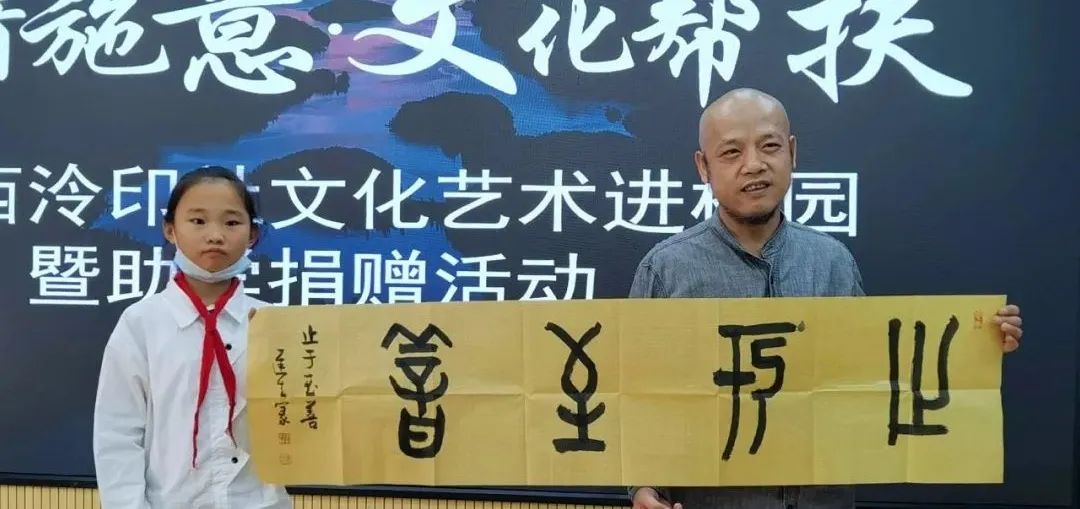 情施意·文化帮扶
西泠印社文化艺术进校园
暨助学捐赠活动
止于至善
止于至善